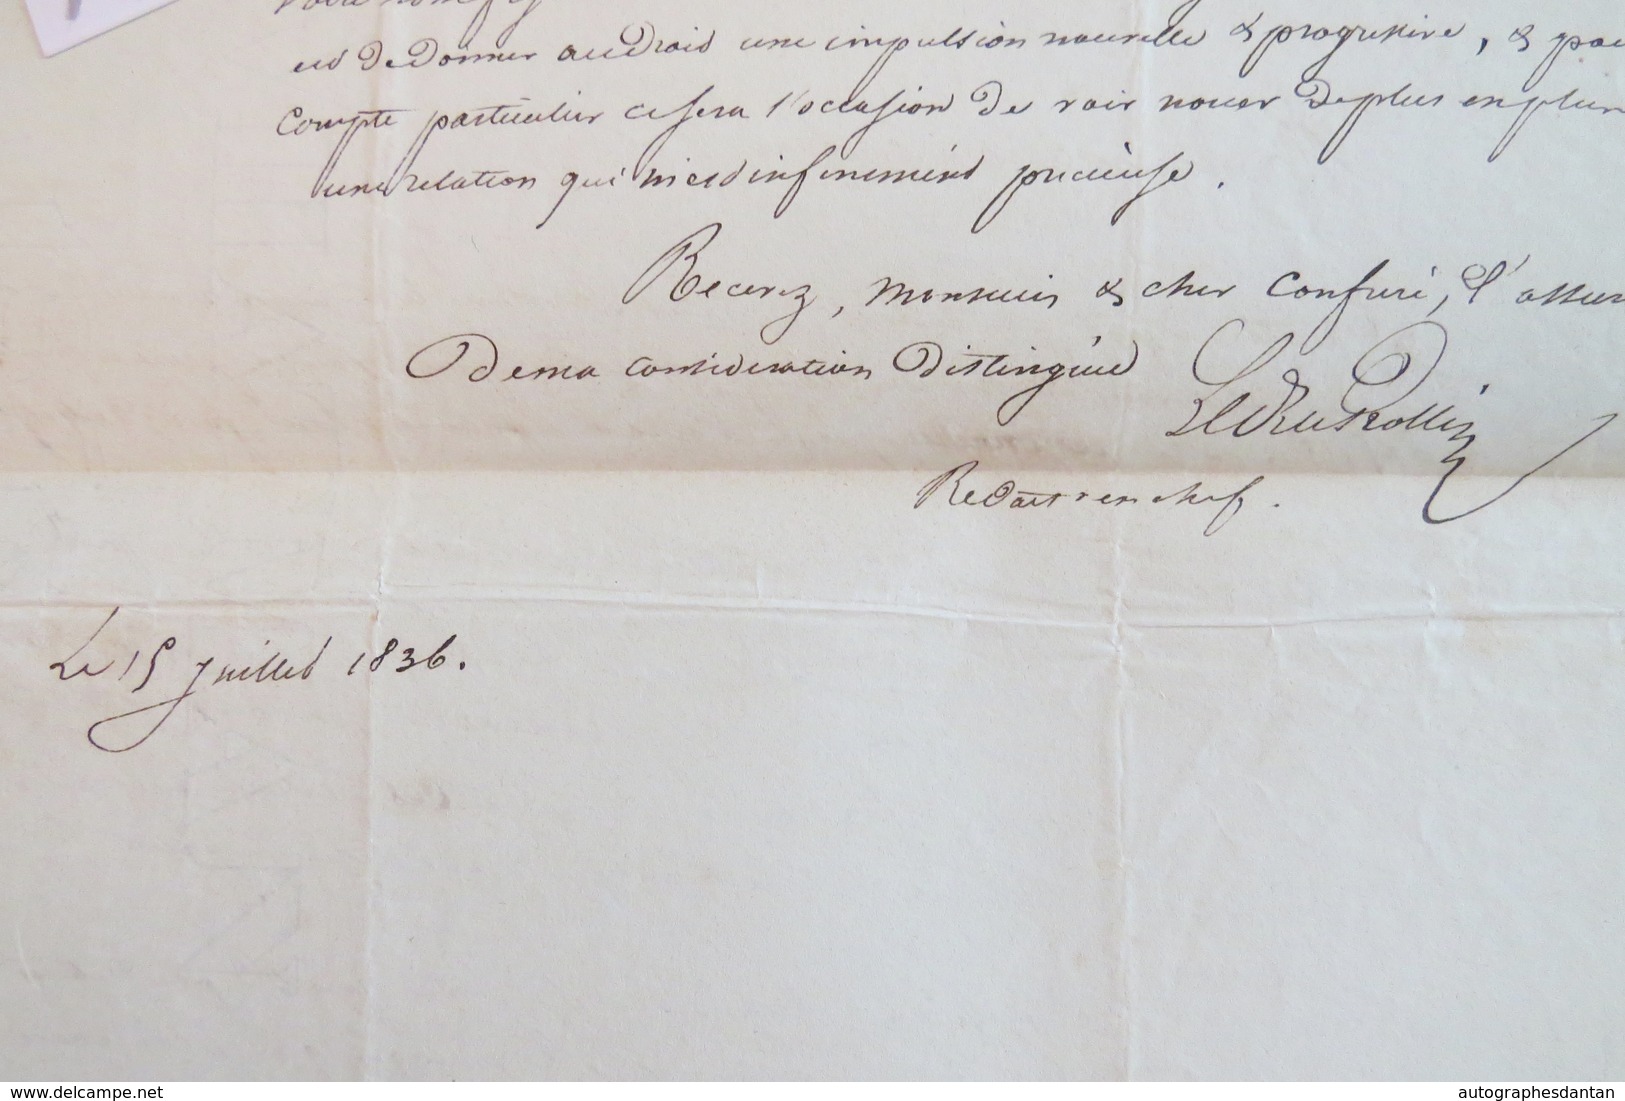 est de donner au droit une impulsion nouvelle & progressive, & pou
compte particulier ce sera l'occasion de voir nouer de plus en plus
une relation qui m'est infiniment précieuse.
Recevez, monsieur & cher confrère, l'assur
de ma considération distinguée
Ledru Rollin
Rédact^r en chef.
Le 15 juillet 1836.
www.delcampe.net
autographesdantan